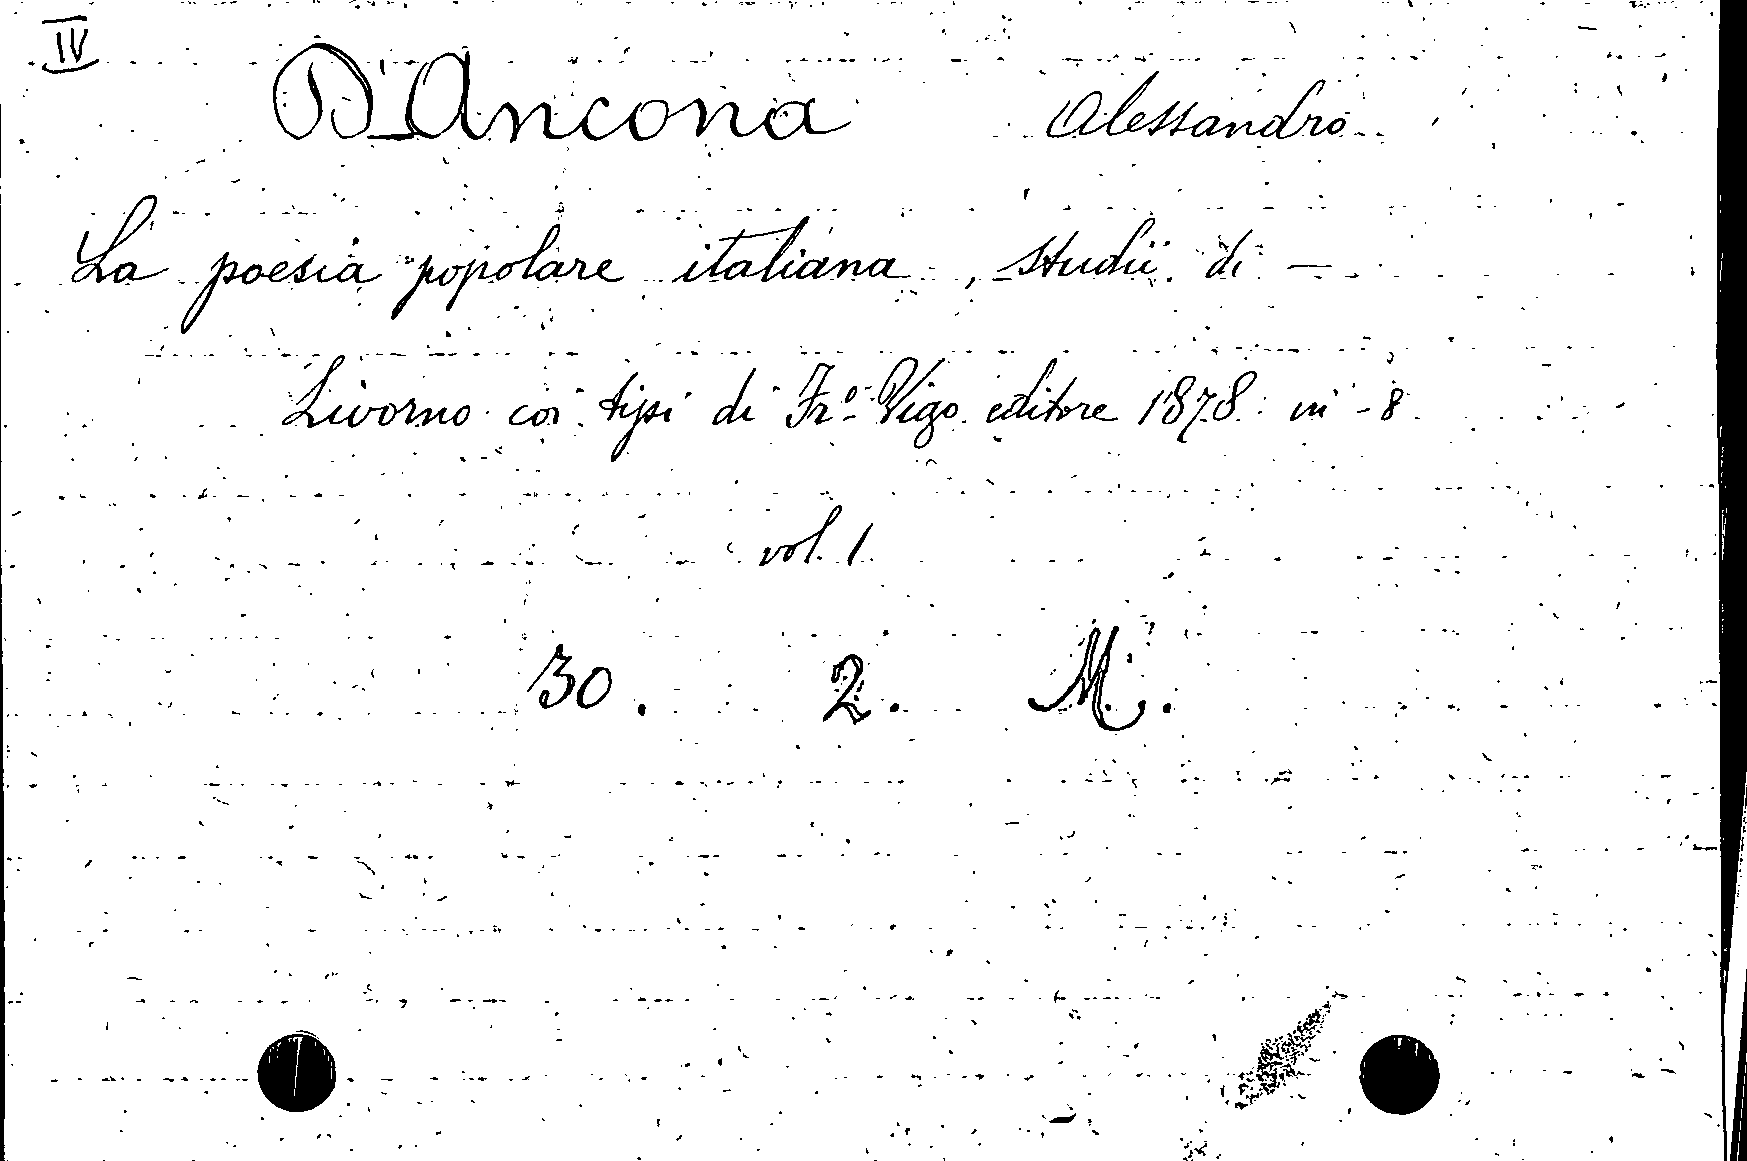 IV
D'Ancona Alessandro
La poesia popolare italiana, studii di —
Livorno coi tipi di Fr.º Vigo editore 1878 in-8
vol. 1
30. 2. M.